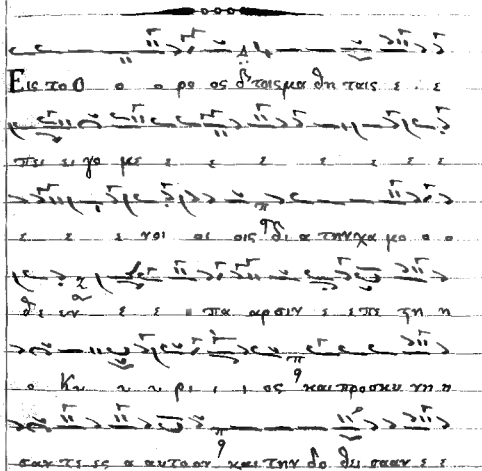 Εις το Ο ο ο ρο ος τοις μα θη ταις ε ε ε
πει ει γο με ε ε ε ε ε ε ε
ε ε ε νοι οι οις δι α την χα μο ο ο
θε εν ε ε ε πα αρσιν ε επε ϛη η
ο Κυ υ υ ρι ι ι ος και προσκυ νη η
σαν τε ες α αυτοον και την δο θει σααν ε ε